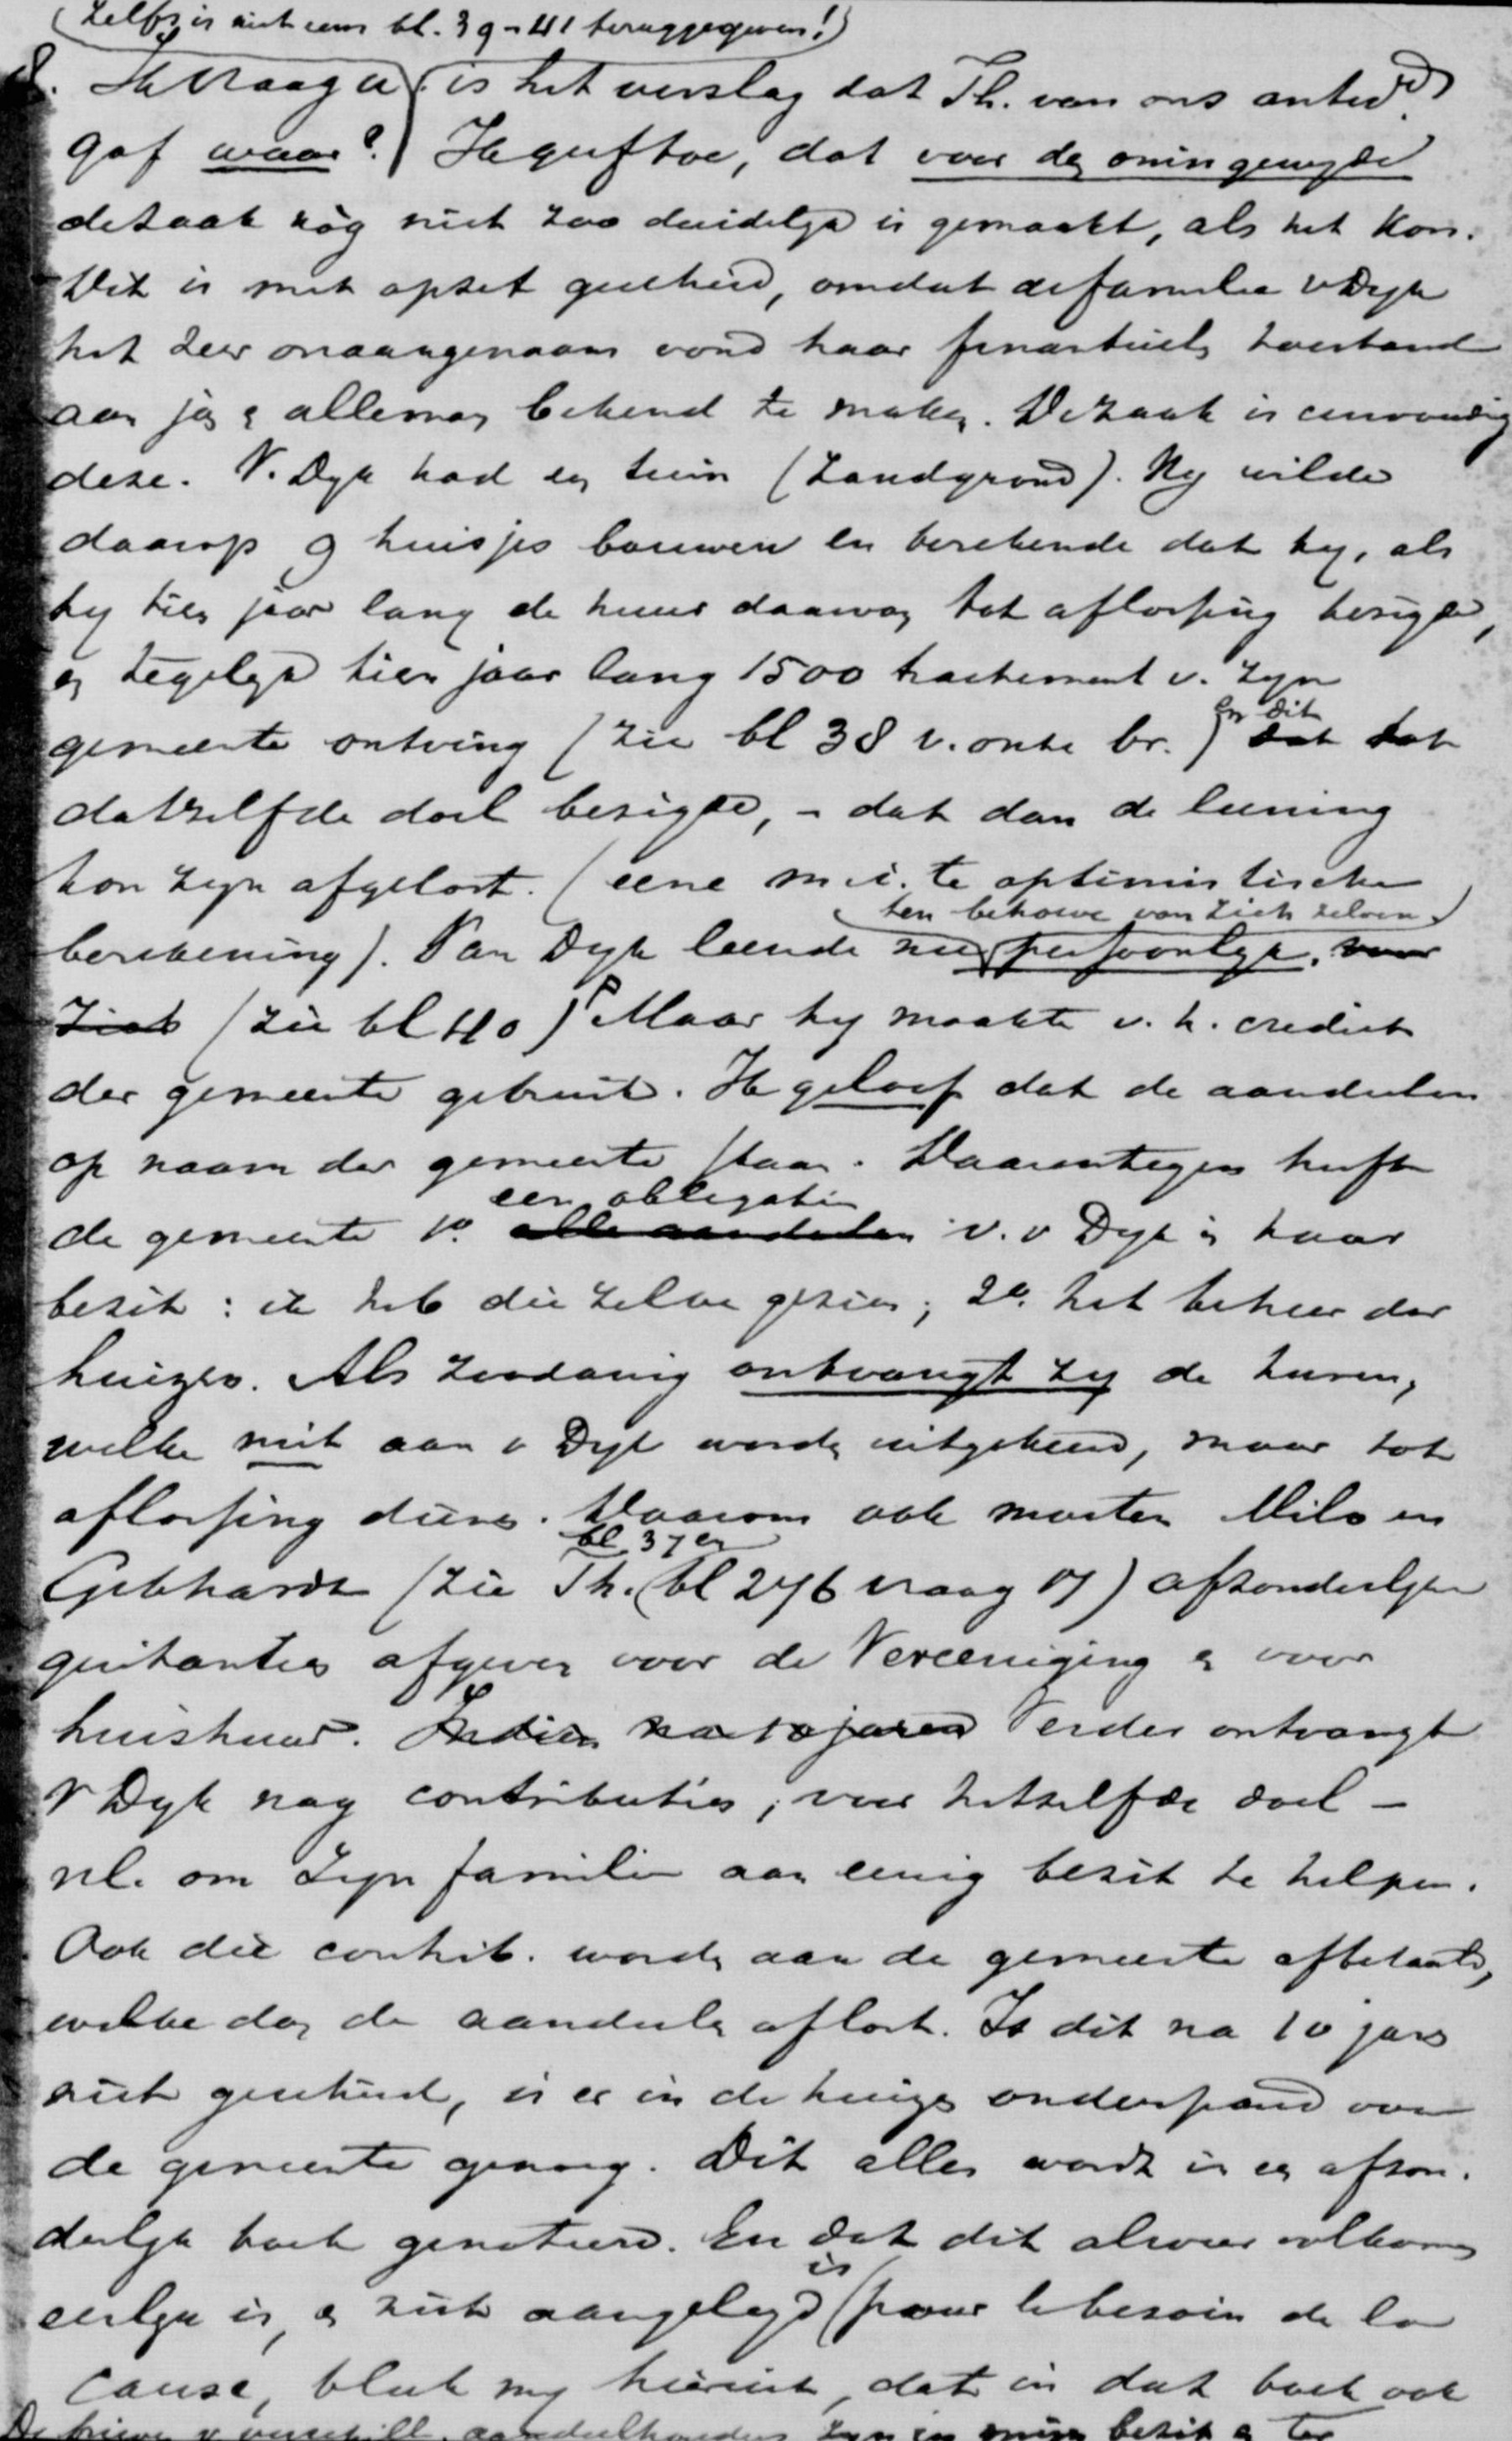 (Zelfs is niet eens bl. 39-41 teruggegeven!)
8. Ik vraag u is het verslag dat Th. van ons antw.
gaf waar? Ik geef toe, dat voor den oningewijde
de zaak nog niet zoo duidelijk is gemaakt, als het kon.
Dit is met opzet geschied, omdat de familie v Dijk
het zeer onaangenaam vond haar finantieele toestand
aan jan & alleman bekend te maken. De zaak is eenvoudig
deze. V. Dyk had een tuin (Zandgrond). Hij wilde
daarop 9 huisjes bouwen en berekende dat hij, als
hij tien jaar lang de huur daarvan tot aflossing bezigde,
en tegelijk tien jaar lang 1500 tractement v. zijn
gemeente ontving (zie bl 38 v. onze br.) en dit tot
datzelfde doel bezigde, - dat dan de leening
kon zijn afgelost. (eene m.i. te optimistische
ten behoeve van zich zelven
berekening). Van Dyk leende nu persoonlijk, voor
zich (zie bl 40) Maar hij maakte v. h. crediet
der gemeente gebruik. Ik geloof dat de aandeelen
op naam der gemeente staan. Daarentegen heeft
een obligatie
de gemeente 1o. alle aandeelen v. v Dyk in haar
bezit: ik heb die zelve gezien; 2o. het beheer der
huizen. Als zoodanig ontvangt zij de huren,
welke niet aan v Dyk worden uitgekeerd, maar tot
aflossing dienen. Daarom ook moeten Milo en
bl 37 en
Gebhardt (zie Th. (bl 276 vraag 17) afzonderlijke
quitanties afgeven voor de Vereeniging & voor
huishuur. Indien na 10 jaren Verder ontvangt
V Dyk nog contributies, voor hetzelfde doel -
nl. om zijn familie aan eenig bezit te helpen.
Ook die contrib. worden aan de gemeente afbetaald,
welke dan de aandeelen aflost. Is dit na 10 jaar
niet geschied, is er in de huizen onderpand voor
de gemeente genoeg. Dit alles wordt in een afzon-
derlijk boek genoteerd. En dat dit alweer volkomen
eerlijk is, & niet aangelegd is (pour le besoin de la
cause, bleek mij hieruit, dat in dat boek ook
De brieven v verschill. aandeelhouders zijn in mijn bezit & ter